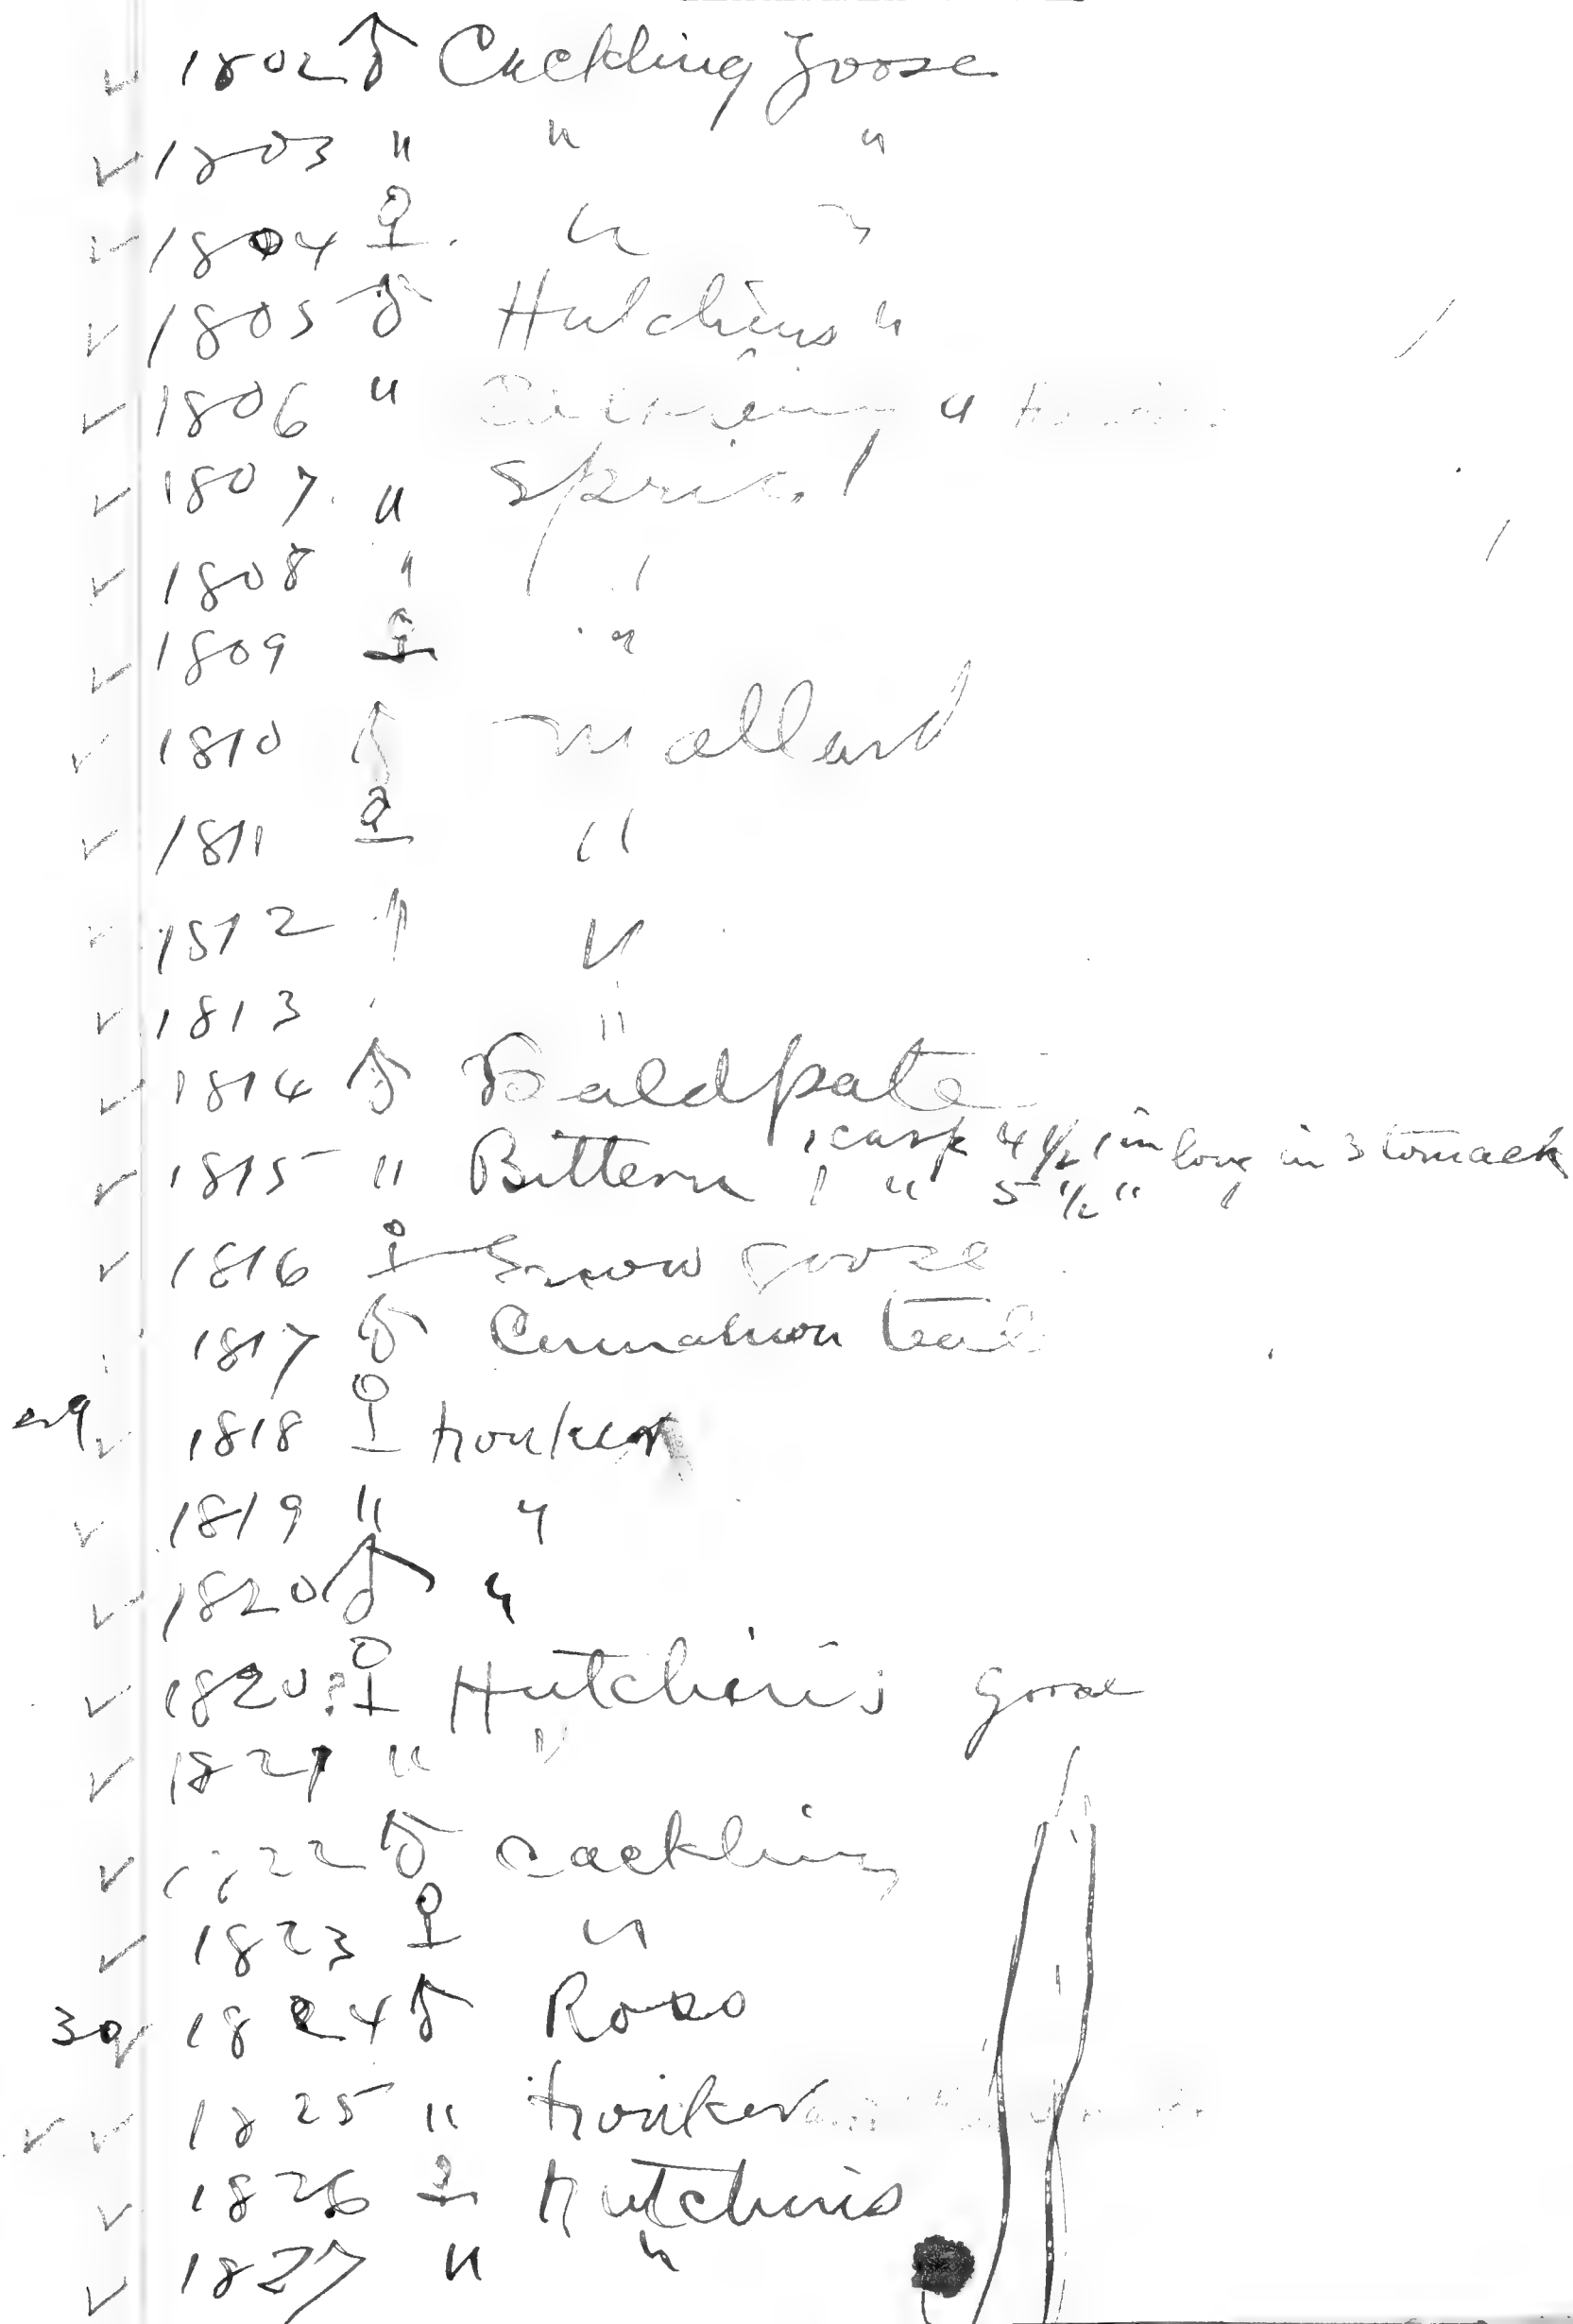 ✓ 1802 ♂ Cackling Goose
✓ 1803 " " "
✓ 1804 ♀ " "
✓ 1805 ♂ Hutchins "
✓ 1806 " "
✓ 1807 " Sprig
✓ 1808 " "
✓ 1809 ♀ "
✓ 1810 ♂ Mallard
✓ 1811 ♀ "
✓ 1812 " "
✓ 1813 "
✓ 1814 ♂ Baldpate
✓ 1815 " Bittern 1 carp 4 1/2 in long in stomach
1 " 5 1/2 "
✓ 1816 ♀ Snow goose
1817 ♂ Cinnamon teal
✓ 1818 ♀ honker
✓ 1819 " "
✓ 1820 ♂ "
✓ 1820? ♀ Hutchins goose
✓ 1821 " "
✓ 1822 ♂ cackling
✓ 1823 ♀ "
✓ 1824 ♂ Ross
✓ ✓ 1825 " honker
✓ 1826 ♀ hutchins
✓ 1827 " "